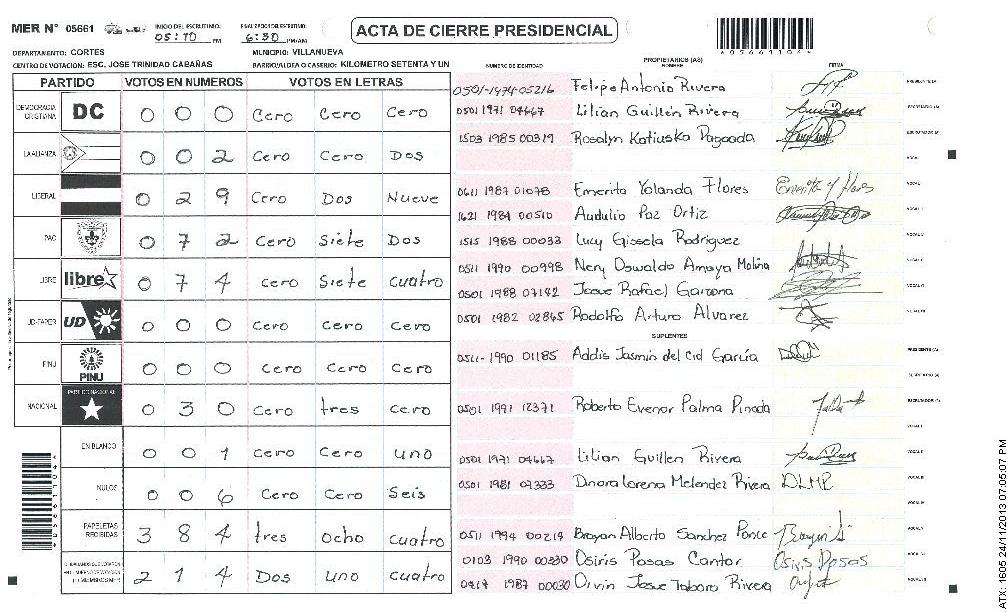 MER N° 05661 INICIO DEL ESCRUTINIO: 05:10 PM FINALIZACION DEL ESCRUTINIO: 6:30 PM/AM
ACTA DE CIERRE PRESIDENCIAL
DEPARTAMENTO: CORTES MUNICIPIO: VILLANUEVA
CENTRO DE VOTACION: ESC. JOSE TRINIDAD CABAÑAS BARRIO/ALDEA O CASERIO: KILOMETRO SETENTA Y UN
PARTIDO VOTOS EN NUMEROS VOTOS EN LETRAS
DEMOCRACIA CRISTIANA DC 0 0 0 Cero Cero Cero
LA ALIANZA 0 0 2 Cero Cero Dos
LIBERAL 0 2 9 Cero Dos Nueve
PAC 0 7 2 Cero Siete Dos
LIBRE libre 0 7 4 Cero Siete cuatro
UD-FAPER UD 0 0 0 Cero Cero Cero
PINU PINU 0 0 0 Cero Cero Cero
NACIONAL PARTIDO NACIONAL 0 3 0 Cero tres cero
EN BLANCO 0 0 1 Cero Cero uno
NULOS 0 0 6 Cero Cero Seis
PAPELETAS RECIBIDAS 3 8 4 tres ocho cuatro
2 1 4 Dos uno cuatro
NUMERO DE IDENTIDAD PROPIETARIOS (AS) NOMBRE FIRMA
0501-1974-05216 Felipe Antonio Rivera
0501 1971 04667 Lilian Guillén Rivera
1503 1985 00319 Rosalyn Katiuska Pagoada
0611 1987 01078 Emerita Yolanda Flores
1621 1984 00510 Audulio Paz Ortiz
1515 1988 00033 Lucy Gissela Rodriguez
0511 1990 00998 Nery Oswaldo Amaya Molina
0501 1988 07142 Josue Rafael
0501 1982 02865 Rodolfo Arturo Alvarez
SUPLENTES
0511-1990 01185 Addis Jasmin del Cid García
0501 1991 12371 Roberto Evenor Palma Pinoda
0501 1971 04667 Lilian Guillen Rivera
0501 1981 07333 Dinora Lorena Melendez Rivera DLMR
0511 1994 00219 Brayan Alberto Sanchez Ponce
0103 1990 00330 Osiris Posas Cantor Osiris Posas
1987 00030 Josue Taboro Rivera
05661104
ATX: 1605 24/11/2013 07:05:07 PM